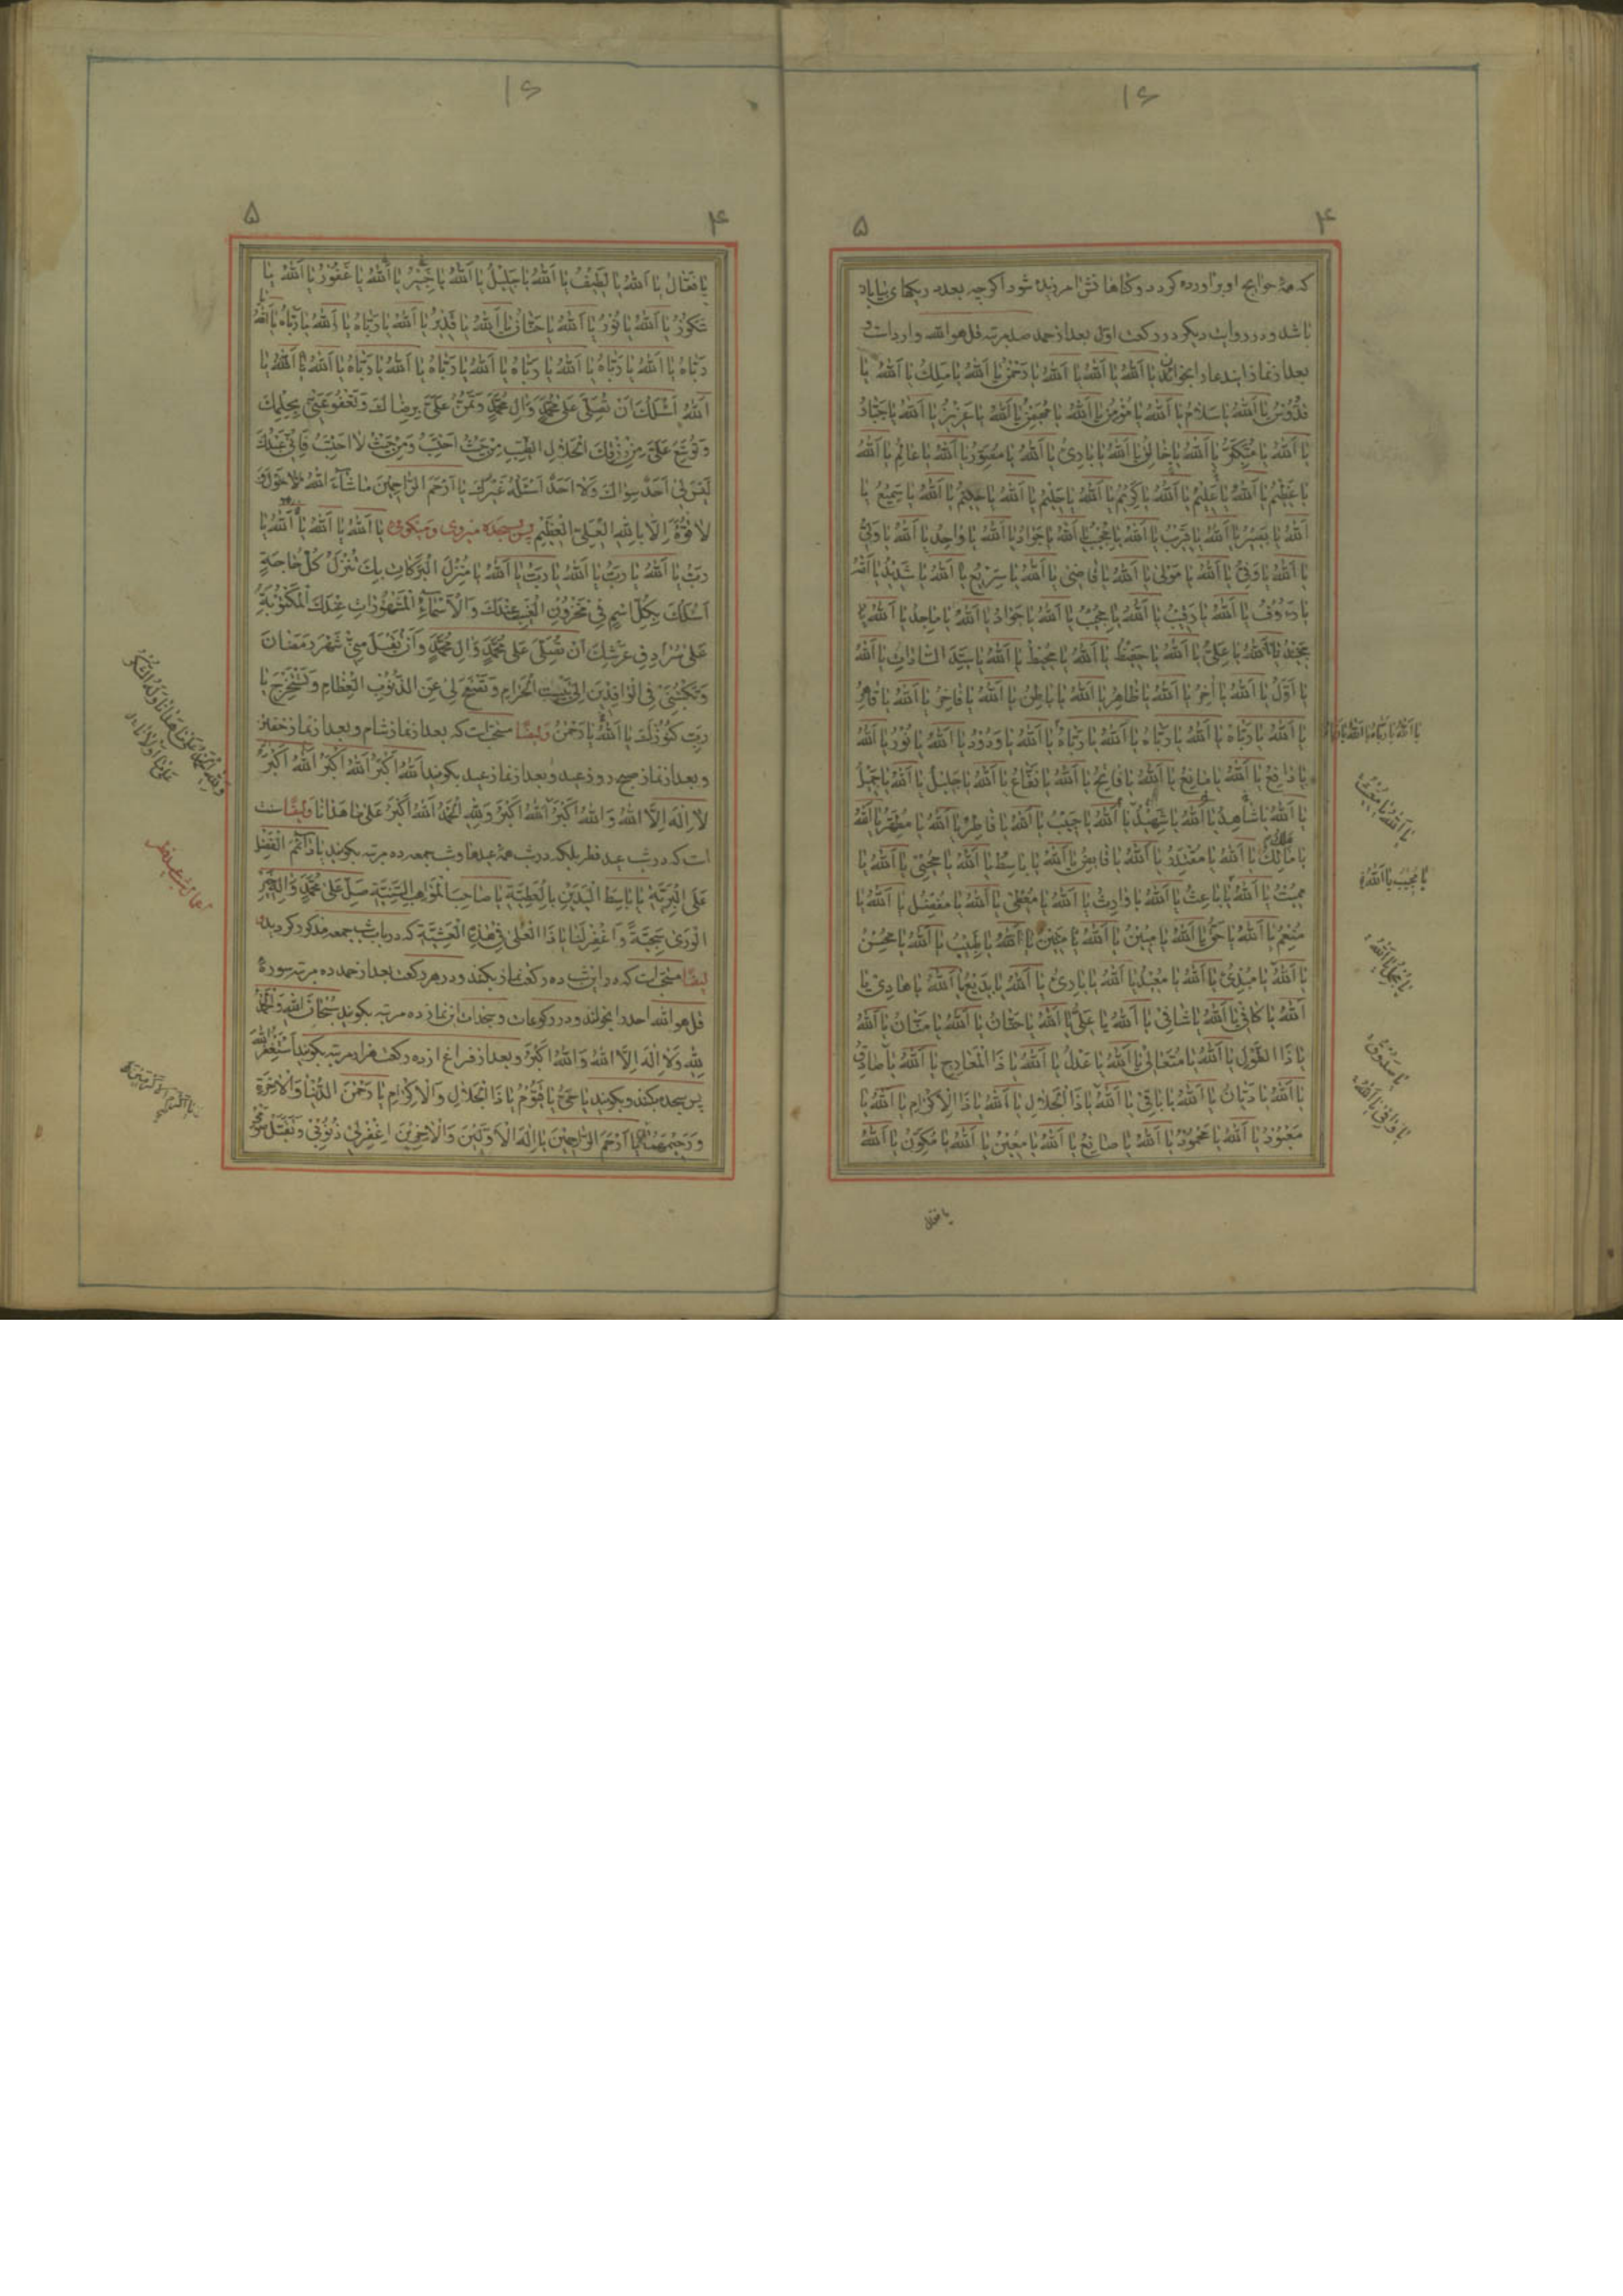 ۱۶
۴ ۵
که همهٔ حوایج او برآورده گردد و گناهانش آمرزیده شود اگرچه بعدد ریگهای بیابان
باشد و در روایت دیگر در رکعت اول بعد از حمد صد مرتبه قل هو الله وارد است و
بعد از نماز این دعا را بخواند یا اَللّٰهُ یا اَللّٰهُ یا اَللّٰهُ یا رَحْمٰنُ یا اَللّٰهُ یا مَلِكُ یا اَللّٰهُ یا
قُدُّوسُ یا اَللّٰهُ یا سَلامُ یا اَللّٰهُ یا مُؤْمِنُ یا اَللّٰهُ یا مُهَیْمِنُ یا اَللّٰهُ یا عَزیزُ یا اَللّٰهُ یا جَبّارُ
یا اَللّٰهُ یا مُتَكَبِّرُ یا اَللّٰهُ یا خالِقُ یا اَللّٰهُ یا بارِئُ یا اَللّٰهُ یا مُصَوِّرُ یا اَللّٰهُ یا عالِمُ یا اَللّٰهُ
یا عَظیمُ یا اَللّٰهُ یا عَلیمُ یا اَللّٰهُ یا كَریمُ یا اَللّٰهُ یا حَلیمُ یا اَللّٰهُ یا حَكیمُ یا اَللّٰهُ یا سَمیعُ یا
اَللّٰهُ یا بَصیرُ یا اَللّٰهُ یا قَریبُ یا اَللّٰهُ یا مُجیبُ یا اَللّٰهُ یا جَوادُ یا اَللّٰهُ یا واحِدُ یا اَللّٰهُ یا وَلِیُّ
یا اَللّٰهُ یا وَفِیُّ یا اَللّٰهُ یا مَوْلٰی یا اَللّٰهُ یا قاضی یا اَللّٰهُ یا سَریعُ یا اَللّٰهُ یا شَدیدُ یا اَللّٰهُ
یا رَءُوفُ یا اَللّٰهُ یا رَقیبُ یا اَللّٰهُ یا مُجیبُ یا اَللّٰهُ یا جَوادُ یا اَللّٰهُ یا ماجِدُ یا اَللّٰهُ یا
مَجیدُ یا اَللّٰهُ یا عَلِیُّ یا اَللّٰهُ یا حَفیظُ یا اَللّٰهُ یا مُحیطُ یا اَللّٰهُ یا سَیِّدَ السّاداتِ یا اَللّٰهُ
یا اَوَّلُ یا اَللّٰهُ یا آخِرُ یا اَللّٰهُ یا ظاهِرُ یا اَللّٰهُ یا باطِنُ یا اَللّٰهُ یا فاخِرُ یا اَللّٰهُ یا قاهِرُ
یا اَللّٰهُ یا رَبّاهُ یا اَللّٰهُ یا رَبّاهُ یا اَللّٰهُ یا رَبّاهُ یا اَللّٰهُ یا وَدُودُ یا اَللّٰهُ یا نُورُ یا اَللّٰهُ
یا رافِعُ یا اَللّٰهُ یا مانِعُ یا اَللّٰهُ یا فاتِحُ یا اَللّٰهُ یا نَفّاعُ یا اَللّٰهُ یا جَلیلُ یا اَللّٰهُ یا جَمیلُ
یا اَللّٰهُ یا شاهِدُ یا اَللّٰهُ یا شَهیدُ یا اَللّٰهُ یا حَبیبُ یا اَللّٰهُ یا فاطِرُ یا اَللّٰهُ یا مُطَهِّرُ یا اَللّٰهُ
یا مالِكُ یا اَللّٰهُ یا مُقْتَدِرُ یا اَللّٰهُ یا قابِضُ یا اَللّٰهُ یا باسِطُ یا اَللّٰهُ یا مُحْیی یا اَللّٰهُ یا
مُمیتُ یا اَللّٰهُ یا باعِثُ یا اَللّٰهُ یا وارِثُ یا اَللّٰهُ یا مُعْطی یا اَللّٰهُ یا مُفْضِلُ یا اَللّٰهُ یا
مُنْعِمُ یا اَللّٰهُ یا حَقُّ یا اَللّٰهُ یا مُبینُ یا اَللّٰهُ یا مَتینُ یا اَللّٰهُ یا طَبیبُ یا اَللّٰهُ یا مُحْسِنُ
یا اَللّٰهُ یا مُبْدِئُ یا اَللّٰهُ یا مُعیدُ یا اَللّٰهُ یا بارِئُ یا اَللّٰهُ یا بَدیعُ یا اَللّٰهُ یا هادی یا
اَللّٰهُ یا كافی یا اَللّٰهُ یا شافی یا اَللّٰهُ یا عَلِیُّ یا اَللّٰهُ یا حَنّانُ یا اَللّٰهُ یا مَنّانُ یا اَللّٰهُ
یا ذَا الطَّوْلِ یا اَللّٰهُ یا مُتَعالی یا اَللّٰهُ یا عَدْلُ یا اَللّٰهُ یا ذَا الْمَعارِجِ یا اَللّٰهُ یا صادِقُ
یا اَللّٰهُ یا دَیّانُ یا اَللّٰهُ یا باقی یا اَللّٰهُ یا ذَا الْجَلالِ یا اَللّٰهُ یا ذَا الْاِكْرامِ یا اَللّٰهُ یا
مَعْبُودُ یا اَللّٰهُ یا مَحْمُودُ یا اَللّٰهُ یا صانِعُ یا اَللّٰهُ یا مُعینُ یا اَللّٰهُ یا مُكَوِّنُ یا اَللّٰهُ
یا فعال
یا مُجیبُ یا اَللّٰهُ
۱۶
۴ ۵
یا فَعّالُ یا اَللّٰهُ یا لَطیفُ یا اَللّٰهُ یا جَلیلُ یا اَللّٰهُ یا خَبیرُ یا اَللّٰهُ یا غَفُورُ یا اَللّٰهُ یا
شَكُورُ یا اَللّٰهُ یا نُورُ یا اَللّٰهُ یا حَنّانُ یا اَللّٰهُ یا قَدیرُ یا اَللّٰهُ یا رَبّاهُ یا اَللّٰهُ یا رَبّاهُ یا اَللّٰهُ
رَبّاهُ یا اَللّٰهُ یا رَبّاهُ یا اَللّٰهُ یا رَبّاهُ یا اَللّٰهُ یا رَبّاهُ یا اَللّٰهُ یا رَبّاهُ یا اَللّٰهُ یا اَللّٰهُ یا
اَللّٰهُ اَسْئَلُكَ اَنْ تُصَلِّیَ عَلٰی مُحَمَّدٍ وَ آلِ مُحَمَّدٍ وَ تَمُنَّ عَلَیَّ بِرِضاكَ وَ تَعْفُوَ عَنّی بِحِلْمِكَ
وَ تُوَسِّعَ عَلَیَّ مِنْ رِزْقِكَ الْحَلالِ الطَّیِّبِ مِنْ حَیْثُ اَحْتَسِبُ وَ مِنْ حَیْثُ لا اَحْتَسِبُ فَاِنّی عَبْدُكَ
لَیْسَ لی اَحَدٌ سِواكَ وَ لا اَحَدٌ اَسْئَلُهُ غَیْرُكَ یا اَرْحَمَ الرّاحِمینَ ما شآءَ اللّٰهُ لا حَوْلَ وَ
لا قُوَّةَ اِلّا بِاللّٰهِ الْعَلِیِّ الْعَظیمِ پس بسجده میروی و میگوئی یا اَللّٰهُ یا اَللّٰهُ یا اَللّٰهُ یا
رَبُّ یا اَللّٰهُ یا رَبُّ یا اَللّٰهُ یا رَبُّ یا اَللّٰهُ یا مُنْزِلَ الْبَرَكاتِ بِكَ تُنْزَلُ كُلُّ حاجَةٍ
اَسْئَلُكَ بِكُلِّ اسْمٍ فی مَخْزُونِ الْغَیْبِ عِنْدَكَ وَ الْاَسْمآءِ الْمَشْهُوراتِ عِنْدَكَ الْمَكْتُوبَةِ
عَلٰی سُرادِقِ عَرْشِكَ اَنْ تُصَلِّیَ عَلٰی مُحَمَّدٍ وَ آلِ مُحَمَّدٍ وَ اَنْ تَقْبَلَ مِنّی شَهْرَ رَمَضانَ
وَ تَكْتُبَنی فِی الْوافِدینَ اِلٰی بَیْتِكَ الْحَرامِ وَ تَصْفَحَ لی عَنِ الذُّنُوبِ الْعِظامِ وَ تَسْتَخْرِجَ یا
رَبِّ كُنُوزَكَ یا اَللّٰهُ یا رَحْمٰنُ وایضًا سنت است که بعد از نماز شام و بعد از نماز خفتن
و بعد از نماز صبح روز عید و بعد از نماز عید بگوید اَللّٰهُ اَكْبَرُ اَللّٰهُ اَكْبَرُ اَللّٰهُ اَكْبَرُ
لا اِلٰهَ اِلَّا اللّٰهُ وَ اللّٰهُ اَكْبَرُ اَللّٰهُ اَكْبَرُ وَ لِلّٰهِ الْحَمْدُ اَللّٰهُ اَكْبَرُ عَلٰی ما هَدانا وایضًا سنت
است که در شب عید فطر بلکه در شب همهٔ عیدها و شب جمعه ده مرتبه بگوید یا دآئِمَ الْفَضْلِ
عَلَی الْبَرِیَّةِ یا باسِطَ الْیَدَیْنِ بِالْعَطِیَّةِ یا صاحِبَ الْمَواهِبِ السَّنِیَّةِ صَلِّ عَلٰی مُحَمَّدٍ وَ آلِهِ خَیْرِ
الْوَرٰی سَجِیَّةً وَ اغْفِرْ لَنا یا ذَا الْعُلٰی فی هٰذِهِ الْعَشِیَّةِ که در باب شب جمعه مذکور گردید
ایضًا سنت است که در این شب ده رکعت نماز بکند و در هر رکعت بعد از حمد ده مرتبه سوره
قل هو الله احد را بخواند و در رکوعات و سجدات این نماز ده مرتبه بگوید سُبْحانَ اللّٰهِ وَ الْحَمْدُ
لِلّٰهِ وَ لا اِلٰهَ اِلَّا اللّٰهُ وَ اللّٰهُ اَكْبَرُ و بعد از فراغ از ده رکعت هزار مرتبه بگوید اَسْتَغْفِرُ اللّٰهَ
پس سجده میکند و بگوید یا حَیُّ یا قَیُّومُ یا ذَا الْجَلالِ وَ الْاِكْرامِ یا رَحْمٰنَ الدُّنْیا وَ الْاٰخِرَةِ
وَ رَحیمَهُما یا اَرْحَمَ الرّاحِمینَ یا اِلٰهَ الْاَوَّلینَ وَ الْاٰخِرینَ اِغْفِرْ لی ذُنُوبی وَ تَقَبَّلْ صَوْمی